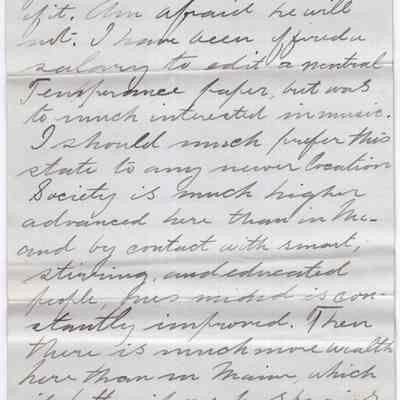 of it. Am afraid he will
not. I have been offered a
salary to edit a neutral
Temperance paper, but was
to much interested in music.
I should much prefer this
state to any newer location
Society is much higher
advanced here than in Me-
and by contact with smart,
stirring, and educated
people, ones mind is con-
stantly improved. Then
there is much more wealth
here than in Maine, which